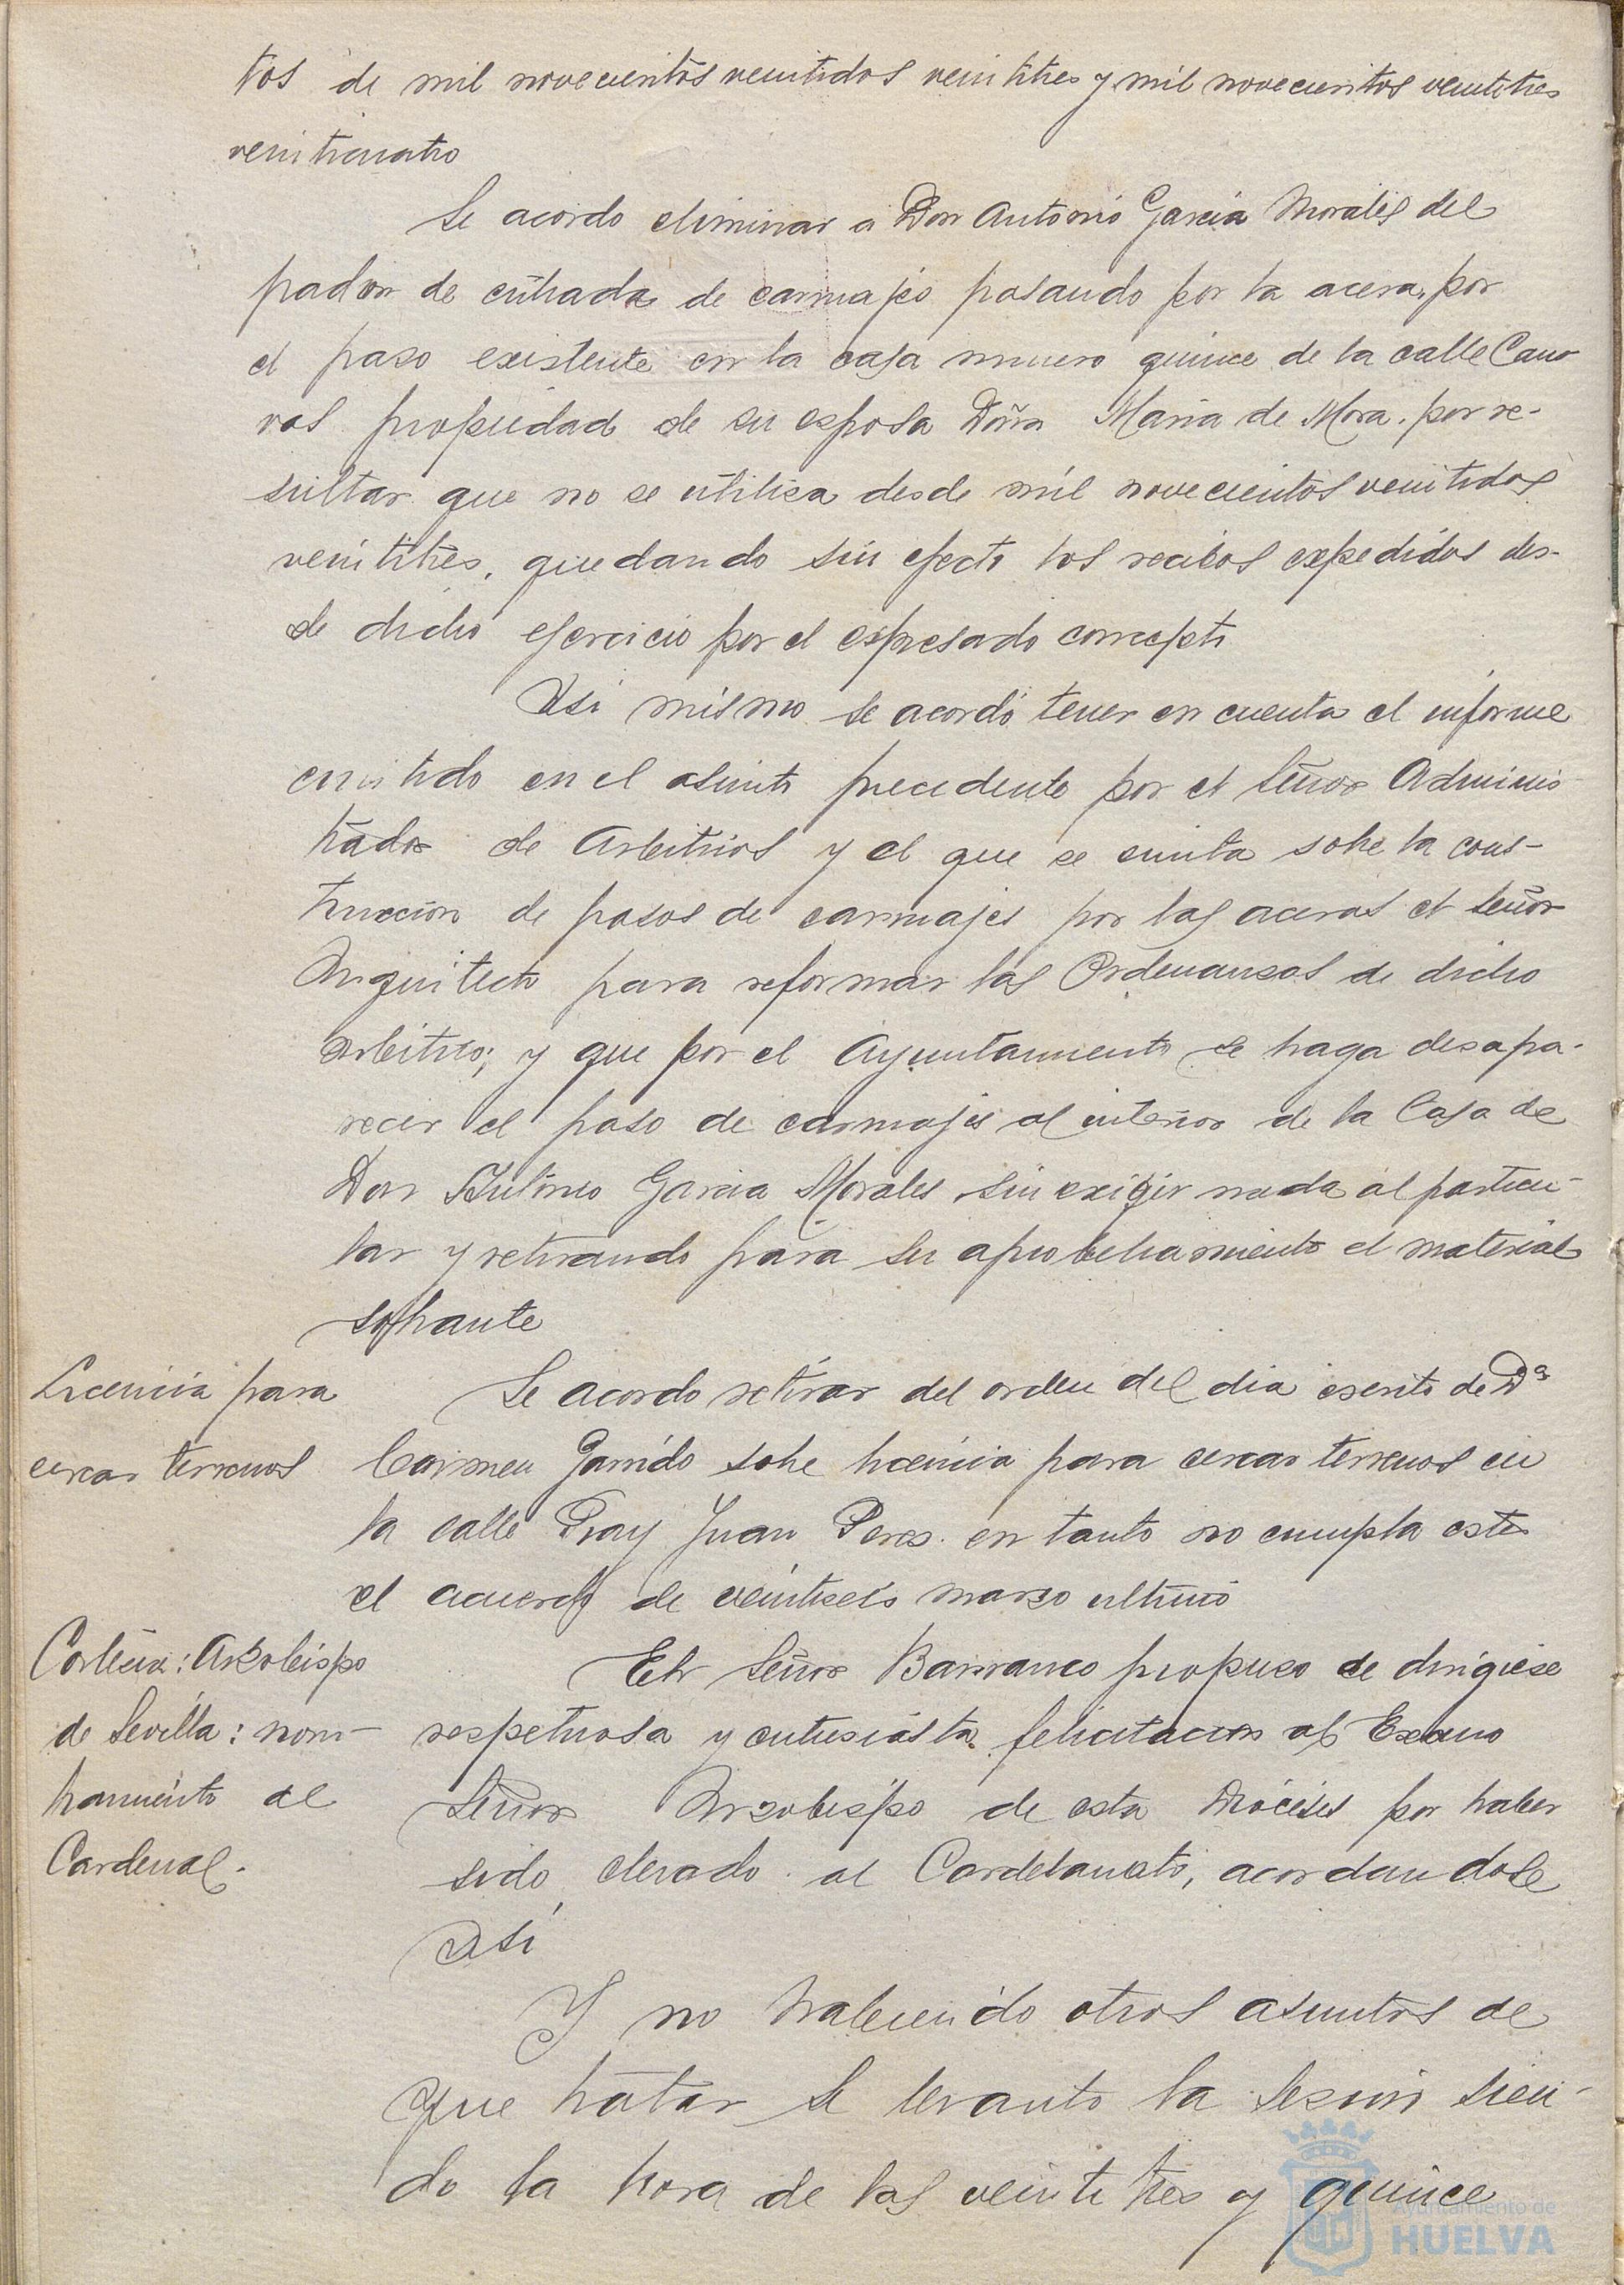 tos de mil novecientos veintidos veintitres y mil novecientos veintitres
veinticuatro
Se acordo eliminar a Don Antonio Garcia Morales del
padron de entrada de carruajes pasando por la acera, por
el paso existente en la casa numero quince de la calle Cano
vas propiedad de su esposa Doña Maria de Mora, por re-
sultar que no se utiliza desde mil novecientos veintidos
veintitres, quedando sin efecto los recibos expedidos des-
de dicho ejercicio por el espresado concepto
Asi mismo se acordó tener en cuenta el informe
emitido en el asunto precedente por el Señor Adminis
trador de Arbitrios y el que se emita sobre la cons-
truccion de pasos de carruajes por las aceras el Señor
Arquitecto para reformar las Ordenanzas de dicho
arbitrio; y que por el Ayuntamiento se haga desapa-
recer el paso de carruajes al interior de la Casa de
Don Antonio Garcia Morales sin exigir nada al particu-
lar y retirando para su aprobechamiento el material
sobrante
Licencia para
cercar terrenos
Se acordo retirar del orden del dia escrito de Dª
Carmen Garrido sobre licencia para cercar terrenos en
la calle Fray Juan Perez en tanto no cumpla este
el acuerdo de veintiseis marzo ultimo
Cortesia: Arzobispo
de Sevilla: nom-
bramiento de
Cardenal.
El Señor Barranco propuso se dirigiese
respetuosa y entusiasta felicitacion al Excmo
Señor Arzobispo de esta Diócesis por haber
sido elevado al Cardelanato, acordandose
asi
Y no habiendo otros asuntos de
que tratar se levanto la sesion sien-
do la hora de las veinte tres y quince
Ayuntamiento de
HUELVA